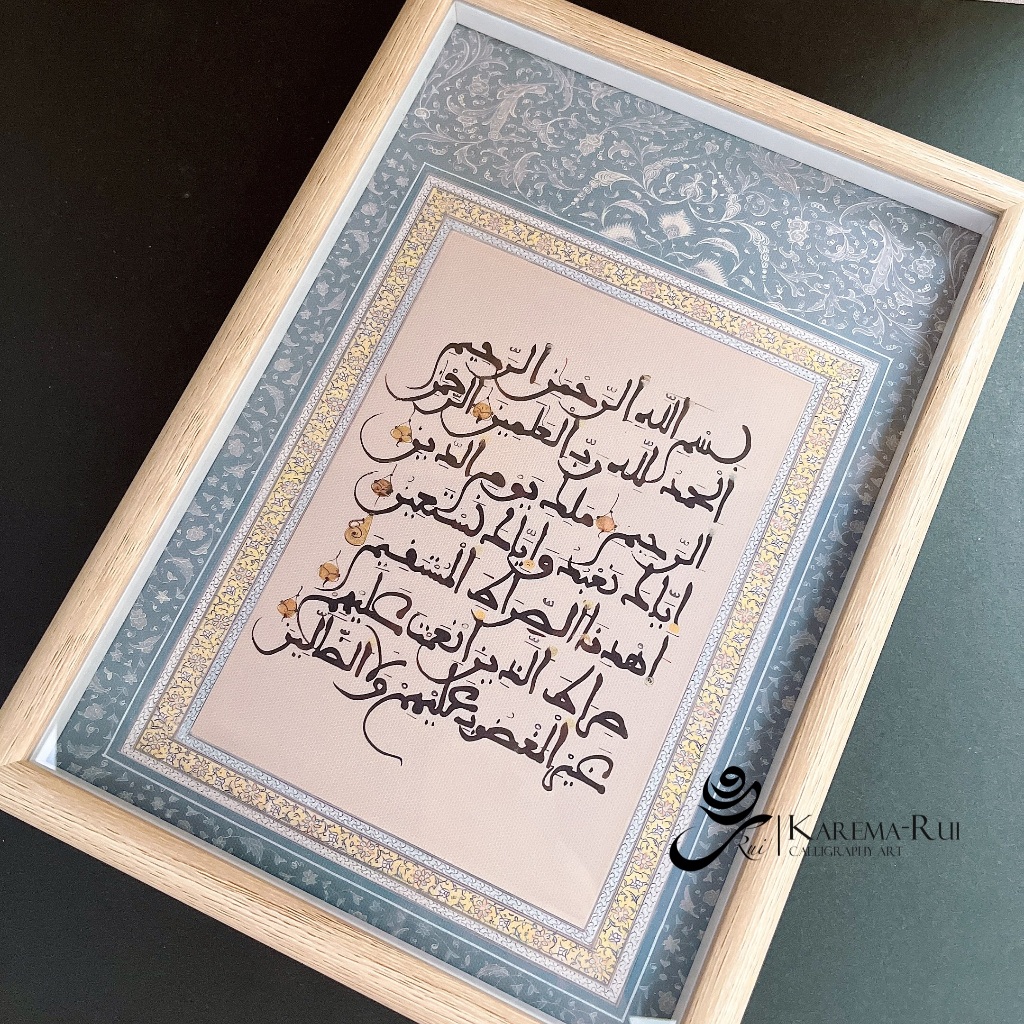 بِسْمِ اللّٰه الرَّحْمٰن الرَّحِيم
الْحَمْدُ لِلّٰه رَبِّ الْعٰلَمِين الرَّحْمٰن
الرَّحِيم مٰلِك يَوْم الدِّين
إِيَّاكَ نَعْبُدُ وَإِيَّاكَ نَسْتَعِين
اهْدِنَا الصِّرَاط الْمُسْتَقِيم
صِرَاط الَّذِينَ أَنْعَمْتَ عَلَيْهِمْ
غَيْرِ الْمَغْضُوبِ عَلَيْهِمْ وَلَا الضَّالِّين
Rui
KAREMA-RUI
CALLIGRAPHY ART